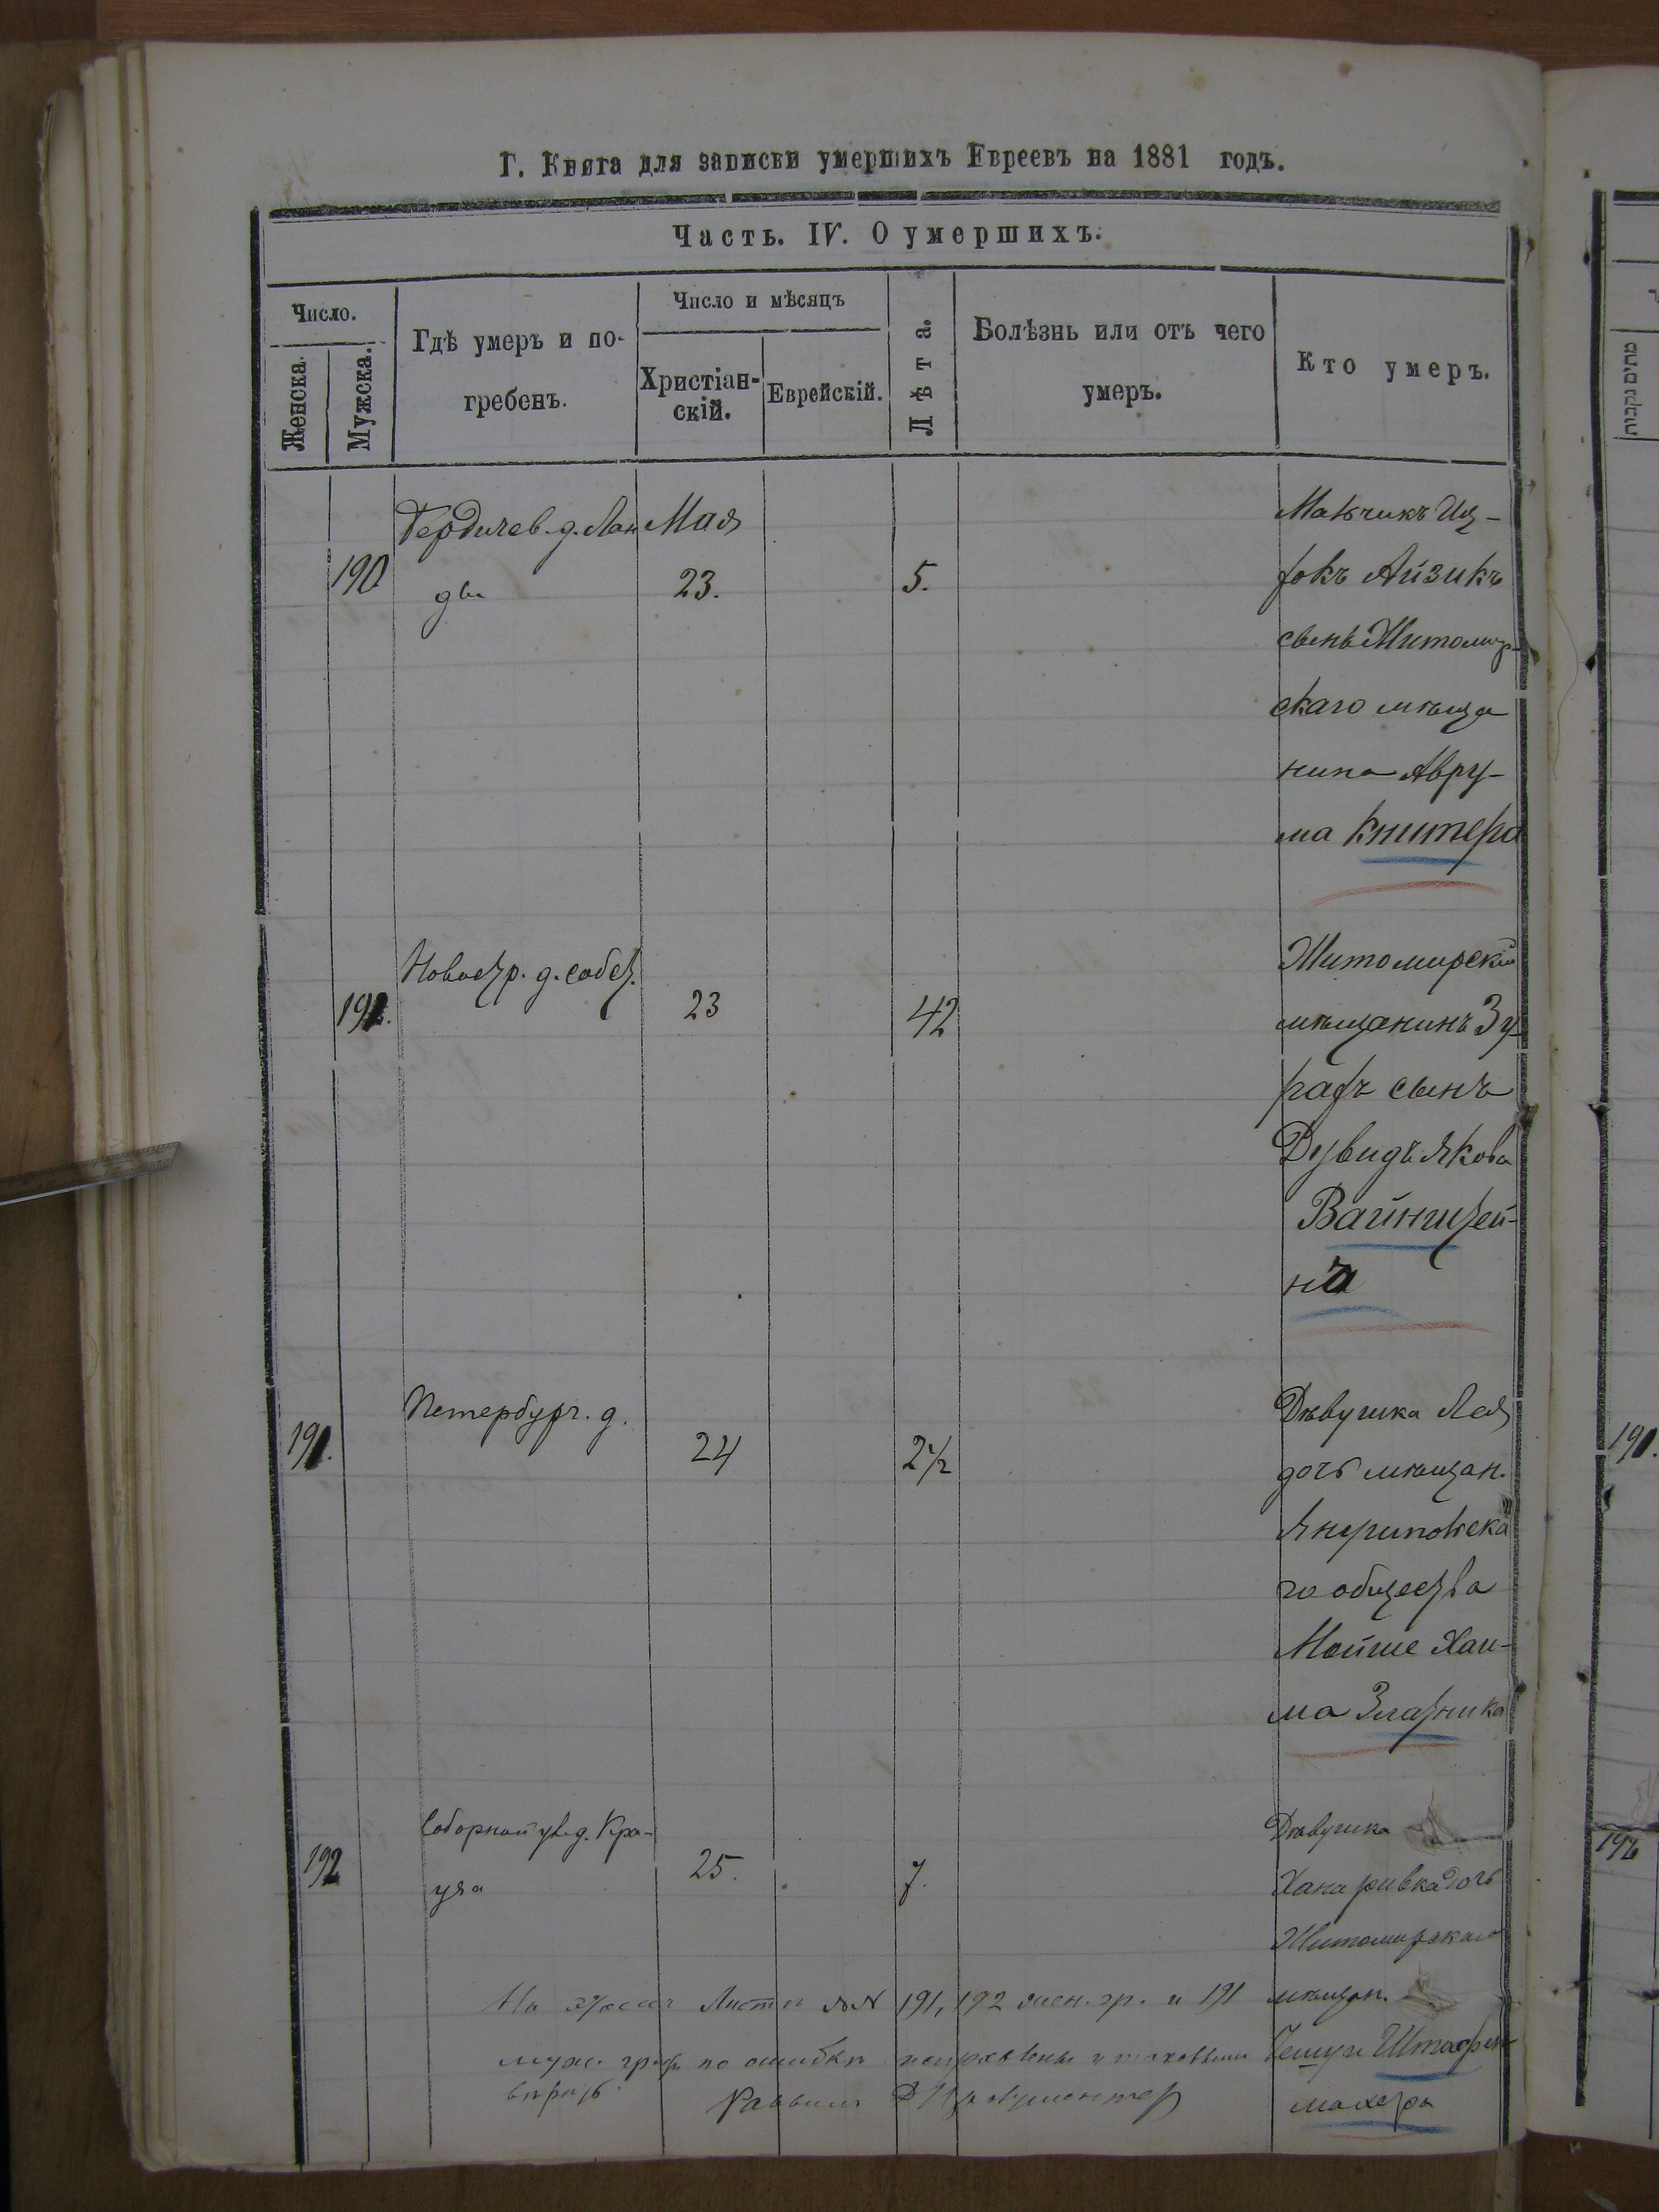 Г. Книга для записки умершихъ Евреевъ на 1881 годъ.
Часть. IV. О умершихъ.
Число.
Женска.
Мужска.
Гдѣ умеръ и по-
гребенъ.
Число и мѣсяцъ
Христіан-
скій.
Еврейскій.
Лѣта.
Болѣзнь или отъ чего
умеръ.
Кто умеръ.
מתים נקבות
190
Бердичев. д. Лан
два
Мая
23.
5.
Мальчикъ Иц-
Айзикъ
сынъ Житомир-
скаго мѣща
нина Авру-
ма Книтера
191.
д. собст.
23
42
Житомирскій
мѣщанинъ
сынъ
Дувидъ Якова
Вайнштей-
на
191.
Петербург. д.
24
2½
Дѣвушка Лея
дочь мѣщан.
го общества
Мойше Хаи-
ма Златника
191.
192
Соборной ул. д. Кра-
25.
7.
Дѣвушка
Хана ривка дочь
Житомирскаго
мѣщан.
192
махера
Листѣ №№ 191, 192 жен. гр. и 191
муж. граф. по ошибкѣ
вѣрить.
Раввинъ